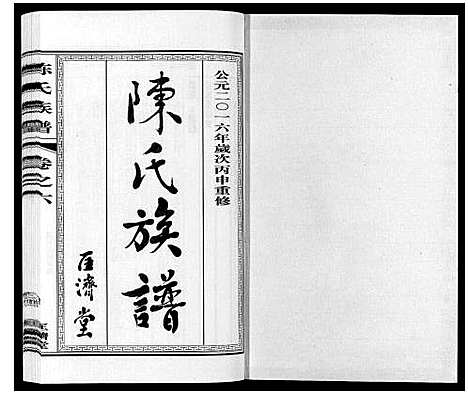 公元二〇一六年歲次丙申重修
陳氏族譜
匡濟堂
陈氏族譜
卷之六
匡濟堂